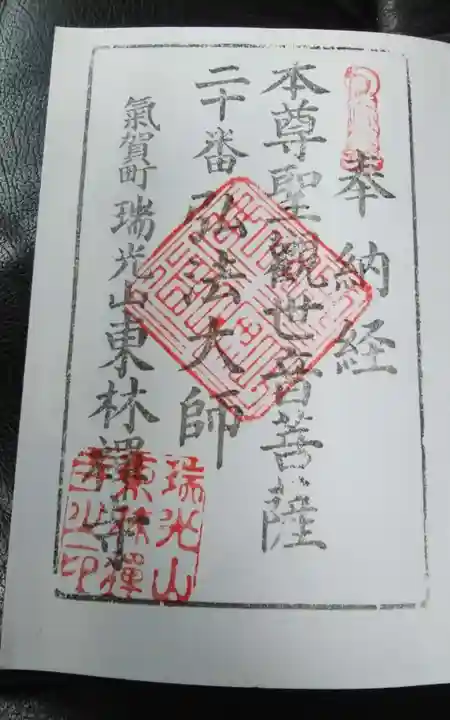 奉納経
本尊聖観世音菩薩
二十番弘法大師
氣賀町瑞光山東林禅寺
瑞光山
東林禅
寺之印